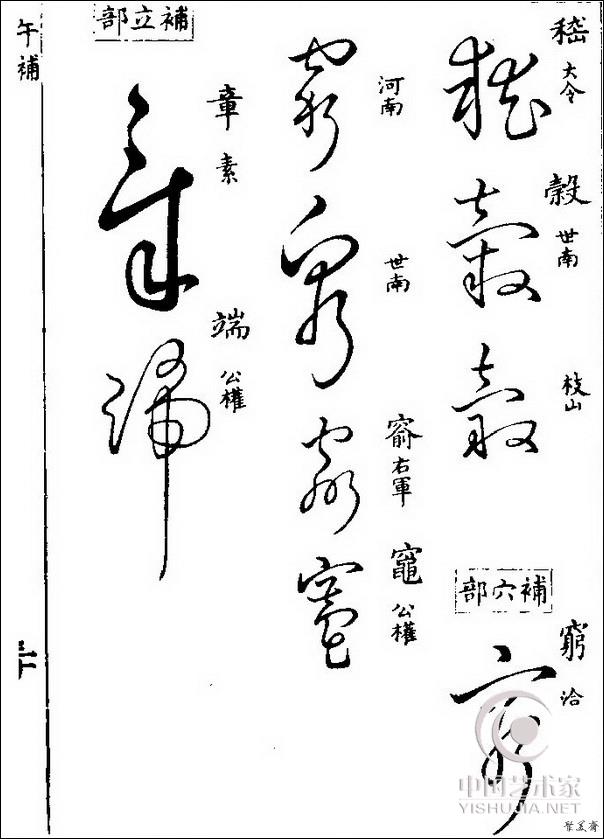 大令
穀 世南
枝山
補穴部
窮 洽
河南
世南
窬 右軍
竈 公權
補立部
章 素
端 公權
午補
中国艺术家
YISHUJIA.NET